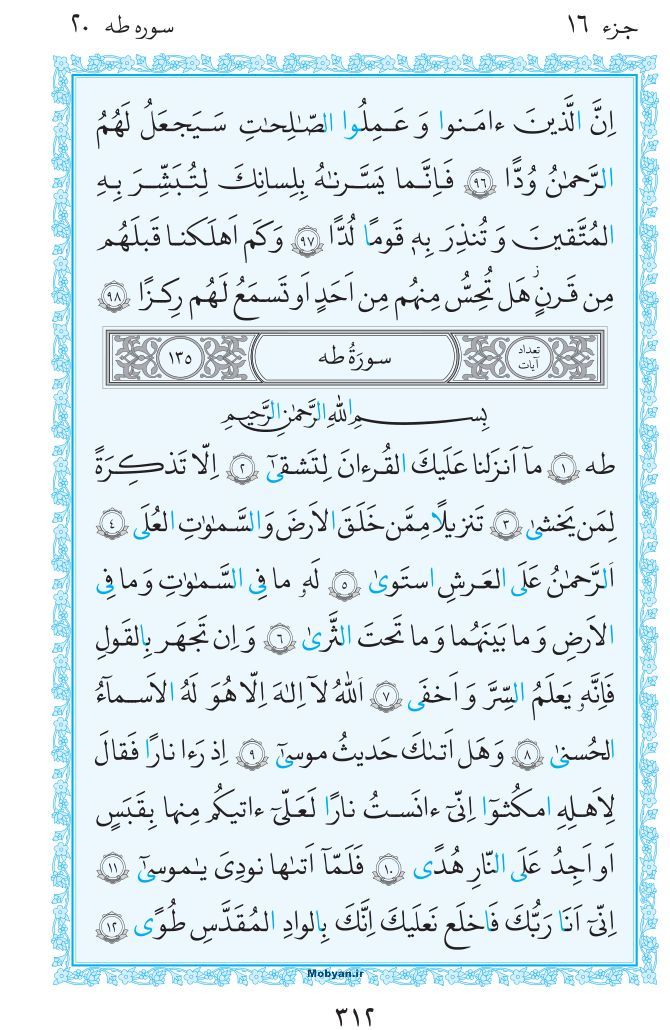 جزء ١٦
سوره طه ٢٠
اِنَّ الَّذینَ ءامَنوا وَ عَمِلُوا الصّـٰلِحـٰتِ سَیَجعَلُ لَهُمُ
الرَّحمـٰنُ وُدًّا ﴿٩٦﴾ فَاِنَّما یَسَّرنـٰهُ بِلِسانِکَ لِتُبَشِّرَ بِهِ
المُتَّقینَ وَ تُنذِرَ بِهٖ قَومًا لُدًّا ﴿٩٧﴾ وَکَم اَهلَکنا قَبلَهُم
مِن قَرنٍ هَل تُحِسُّ مِنهُم مِن اَحَدٍ اَو تَسمَعُ لَهُم رِکزًا ﴿٩٨﴾
تعداد آیات
سورَةُ طه
١٣٥
بِسمِ اللّٰهِ الرَّحمـٰنِ الرَّحیمِ
طه ﴿١﴾ مآ اَنزَلنا عَلَیکَ القُرءانَ لِتَشقیٰٓ ﴿٢﴾ اِلّا تَذکِرَةً
لِمَن یَخشیٰ ﴿٣﴾ تَنزیلًا مِمَّن خَلَقَ الاَرضَ وَ السَّمـٰوٰتِ العُلَی ﴿٤﴾
اَلرَّحمـٰنُ عَلَی العَرشِ استَویٰ ﴿٥﴾ لَهٗ ما فِی السَّمـٰوٰتِ وَ ما فِی
الاَرضِ وَ ما بَینَهُما وَ ما تَحتَ الثَّریٰ ﴿٦﴾ وَ اِن تَجهَر بِالقَولِ
فَاِنَّهٗ یَعلَمُ السِّرَّ وَ اَخفَی ﴿٧﴾ اَللّٰهُ لآ اِلـٰهَ اِلّا هُوَ لَهُ الاَسمآءُ
الحُسنیٰ ﴿٨﴾ وَ هَل اَتـٰکَ حَدیثُ موسیٰٓ ﴿٩﴾ اِذ رَءا نارًا فَقالَ
لِاَهلِهِ امکُثوٓا اِنّیٓ ءانَستُ نارًا لَعَلّیٓ ءاتیکُم مِنها بِقَبَسٍ
اَو اَجِدُ عَلَی النّارِ هُدًی ﴿١٠﴾ فَلَمّآ اَتـٰها نودِیَ یـٰموسیٰٓ ﴿١١﴾
اِنّیٓ اَنَا رَبُّکَ فَاخلَع نَعلَیکَ اِنَّکَ بِالوادِ المُقَدَّسِ طُوًی ﴿١٢﴾
Mobyan.ir
٣١٢